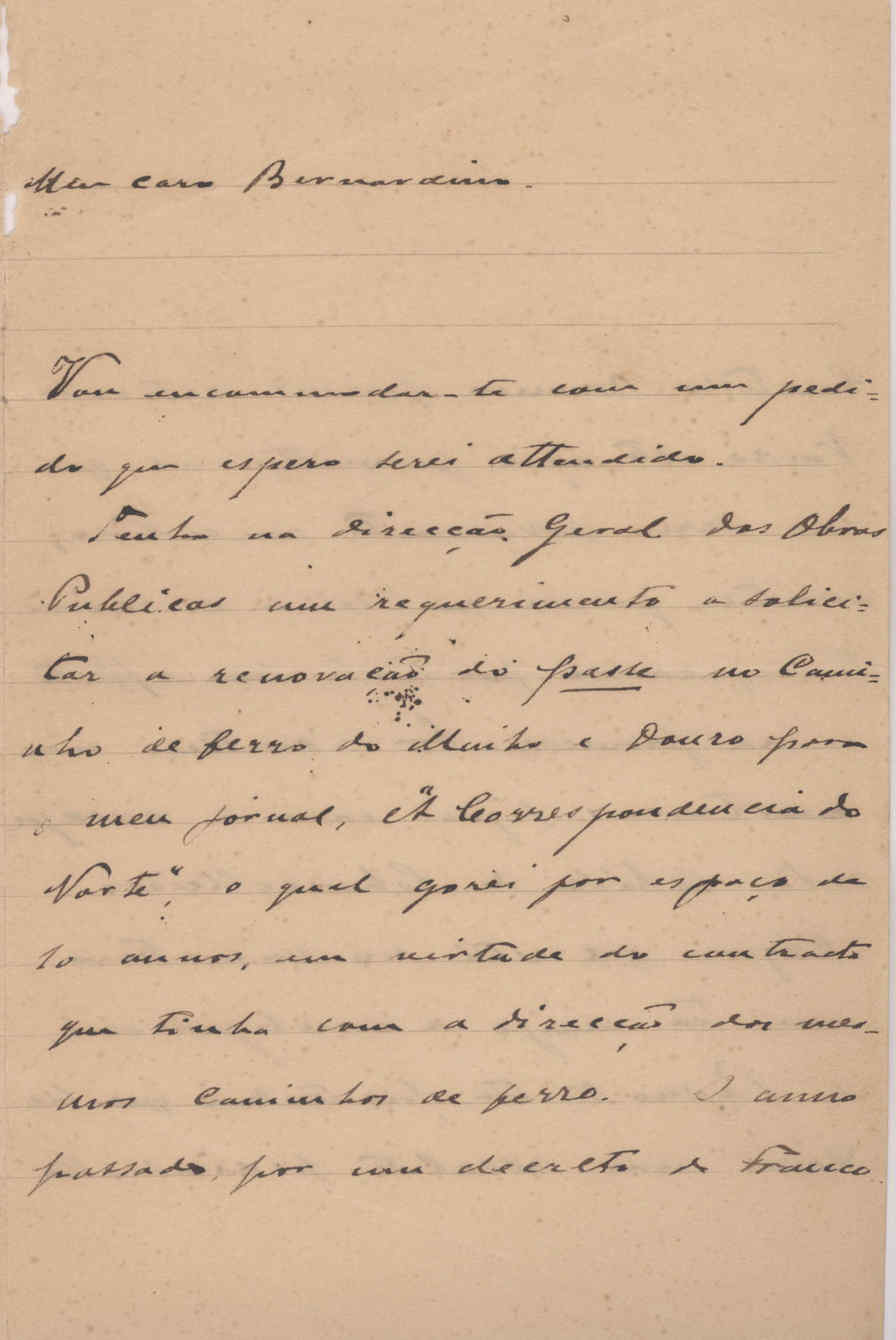 Meu caro Bernardino.
Vou encommodar-te com um pedi=
do que espero serei attendido.
Tenho na direcção Geral das Obras
Publicas um requerimento a solici=
tar a renovação do passe no Cami=
nho de ferro do Minho e Douro para
o meu jornal, "A Correspondencia do
Norte", o qual gosei por espaço de
10 annos, em virtude do contracto
que tinha com a direcção dos mes-
mos Caminhos de ferro. O anno
passado, por um decreto do Franco